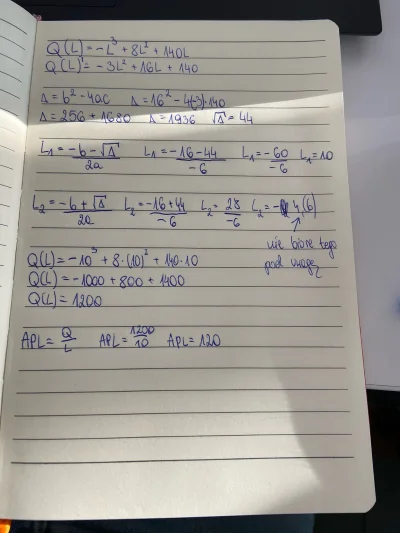 Q(L) = -L³ + 8L² + 140L
Q(L)' = -3L² + 16L + 140
Δ = b² - 4ac Δ = 16² - 4(-3)·140
Δ = 256 + 1680 Δ = 1936 √Δ = 44
L₁ = (-b - √Δ)/2a L₁ = (-16 - 44)/-6 L₁ = -60/-6 L₁ = 10
L₂ = (-b + √Δ)/2a L₂ = (-16 + 44)/-6 L₂ = 28/-6 L₂ = -4,(6)
nie biorę tego
pod uwagę
Q(L) = -10³ + 8·(10)² + 140·10
Q(L) = -1000 + 800 + 1400
Q(L) = 1200
APL = Q/L APL = 1200/10 APL = 120